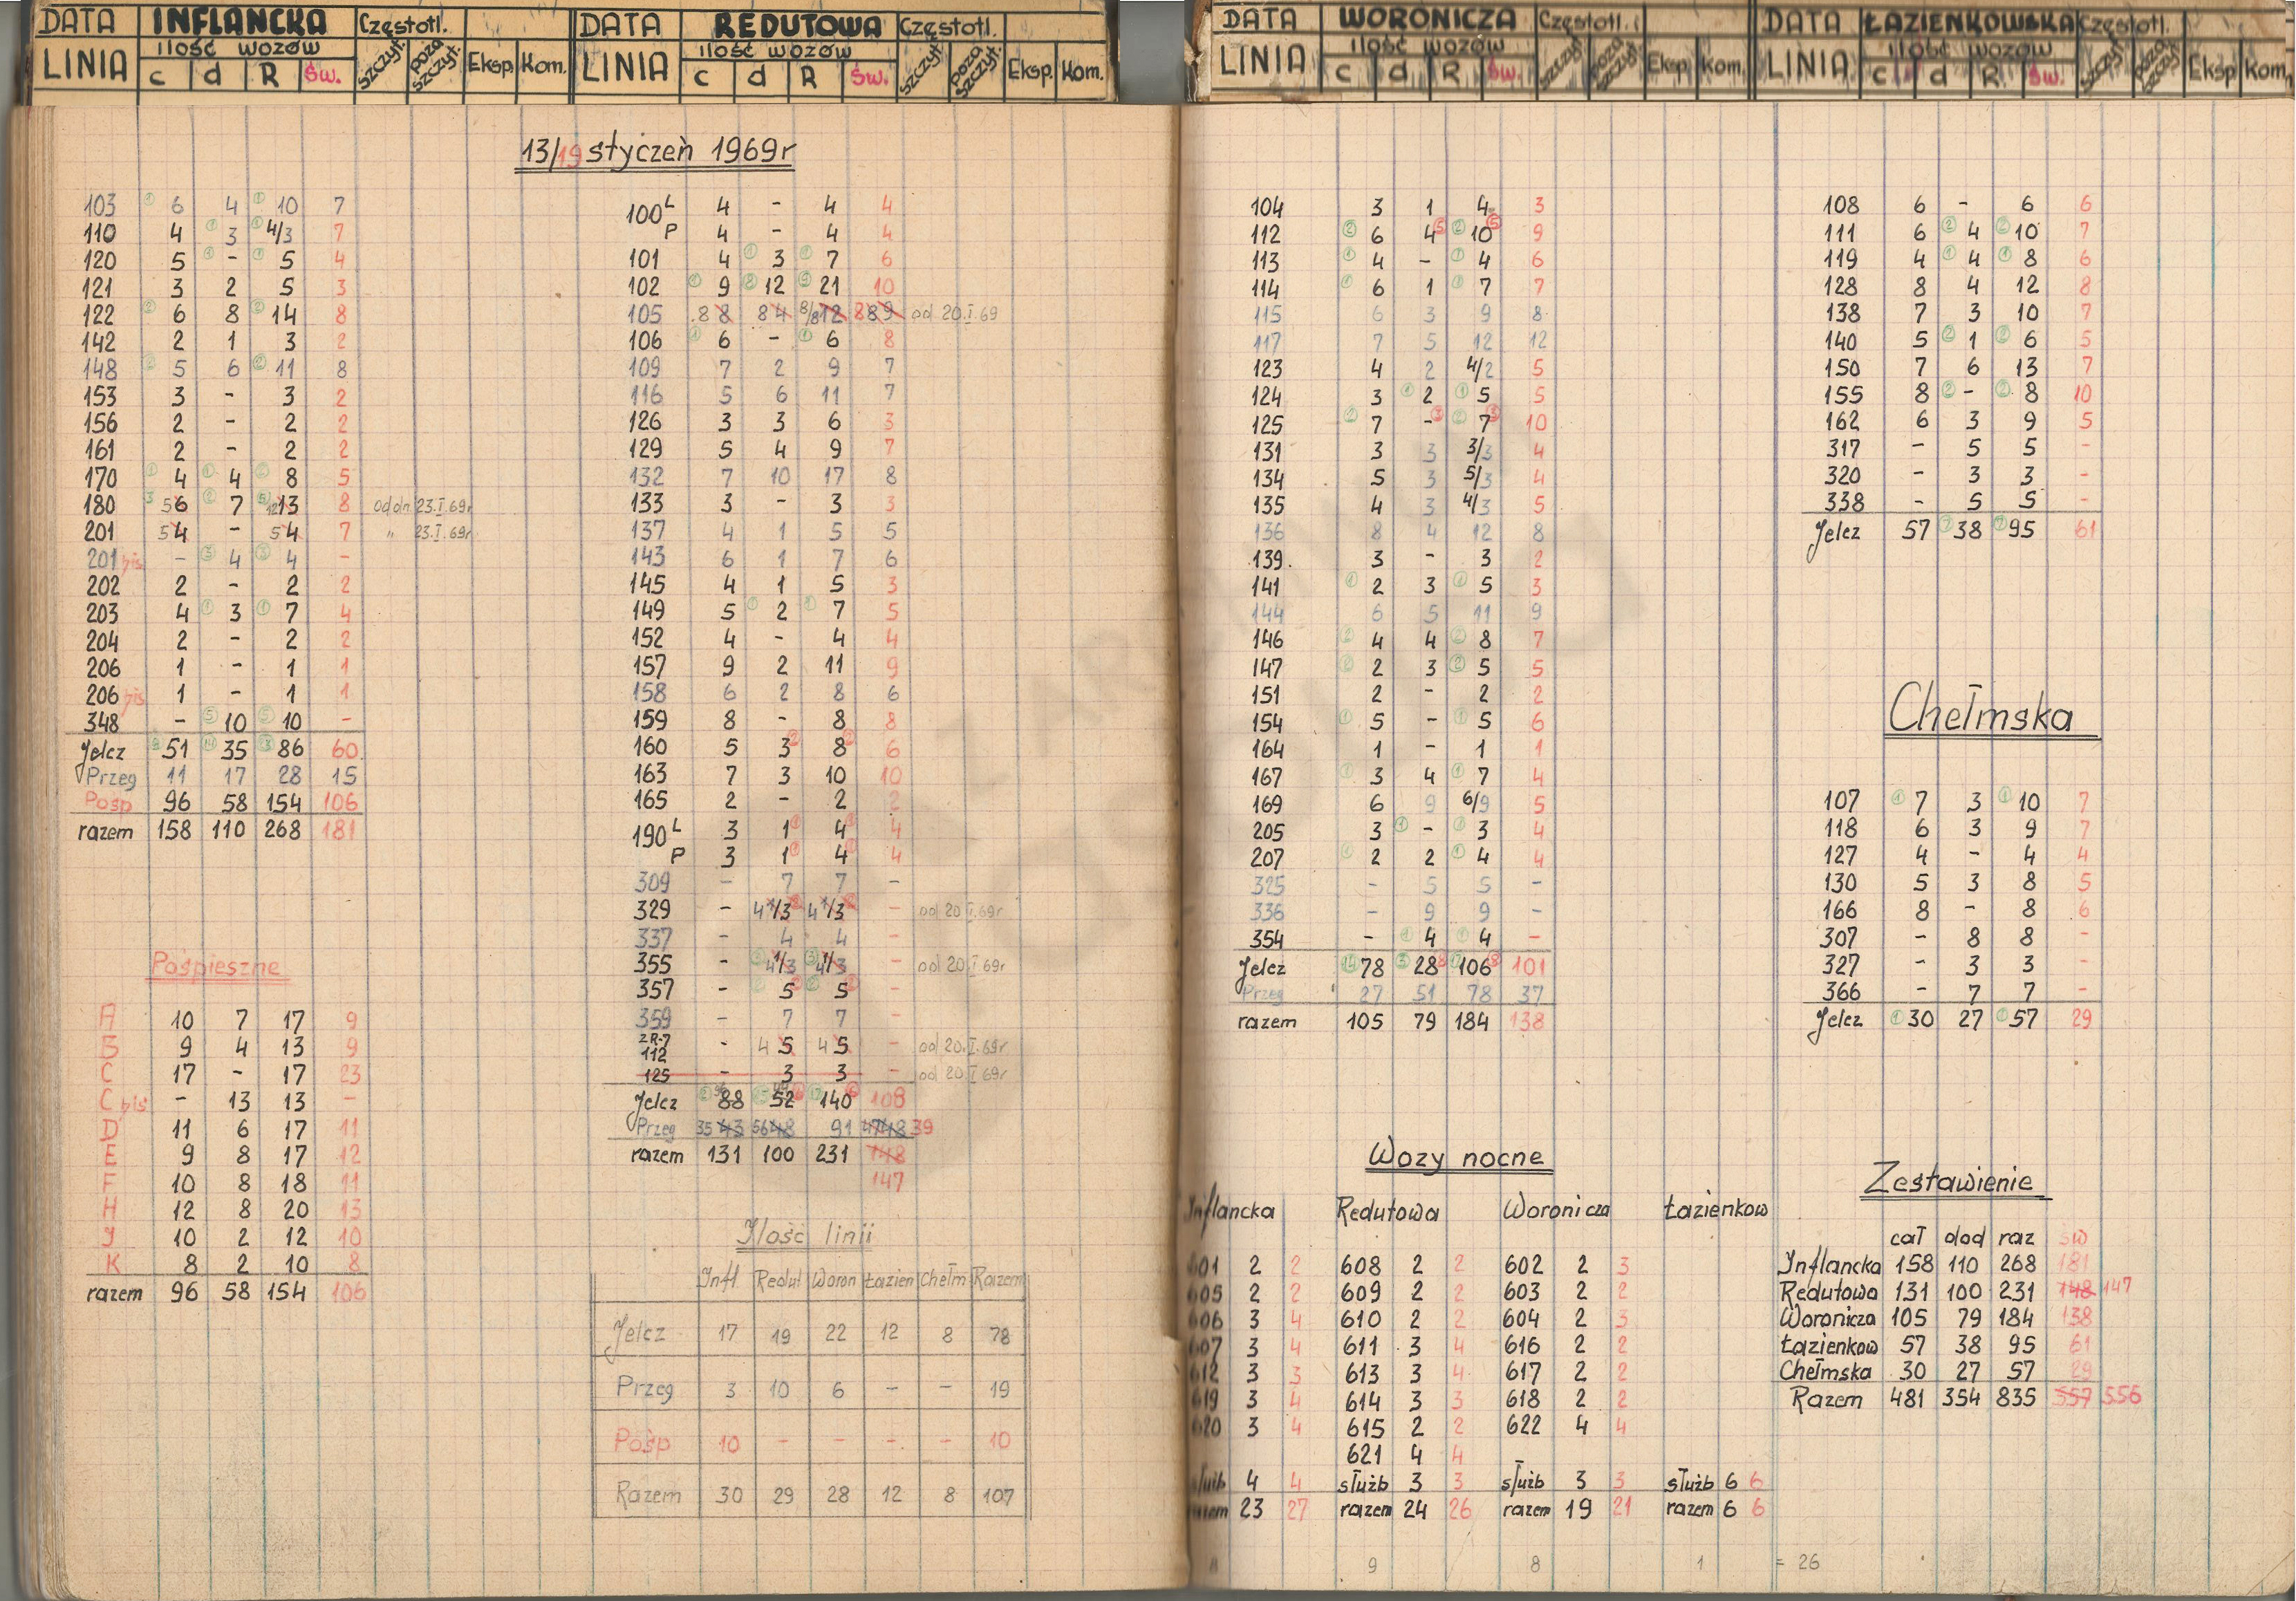 DATA INFLANCKA Częstotl.
LINIA ilość wozów szczyt. poza szczyt. Eksp. Kom.
c d R Św.
DATA REDUTOWA Częstotl.
LINIA ilość wozów szczyt. poza szczyt. Eksp. Kom.
c d R Św.
DATA WORONICZA Częstotl.
LINIA ilość wozów szczyt. poza szczyt. Eksp. Kom.
c d R Św.
DATA ŁAZIENKOWSKA Częstotl.
LINIA ilość wozów szczyt. poza szczyt. Eksp. Kom.
c d R Św.
13/19 styczeń 1969r
103 6 4 10 7
110 4 3 4/3 7
120 5 - 5 4
121 3 2 5 3
122 6 8 14 8
142 2 1 3 2
148 5 6 11 8
153 3 - 3 2
156 2 - 2 2
161 2 - 2 2
170 4 4 8 5
180 5 6 7 12 13 8 od dn. 23.I.69r
201 5 4 - 5 4 7 " 23.I.69r
201 bis - 4 4 -
202 2 - 2 2
203 4 3 7 4
204 2 - 2 2
206 1 - 1 1
206 bis 1 - 1 1
348 - 10 10 -
Jelcz 51 35 86 60
Przeg 11 17 28 15
Pośp 96 58 154 106
razem 158 110 268 181
Pośpieszne
A 10 7 17 9
B 9 4 13 9
C 17 - 17 23
C bis - 13 13 -
D 11 6 17 11
E 9 8 17 12
F 10 8 18 11
H 12 8 20 13
J 10 2 12 10
K 8 2 10 8
razem 96 58 154 106
100 L 4 - 4 4
P 4 - 4 4
101 4 3 7 6
102 9 12 21 10
105 8 8 8 4 8/8 12 8 8 9 od 20.I.69
106 6 - 6 8
109 7 2 9 7
116 5 6 11 7
126 3 3 6 3
129 5 4 9 7
132 7 10 17 8
133 3 - 3 3
137 4 1 5 5
143 6 1 7 6
145 4 1 5 3
149 5 2 7 5
152 4 - 4 4
157 9 2 11 9
158 6 2 8 6
159 8 - 8 8
160 5 3 8 6
163 7 3 10 10
165 2 - 2 2
190 L 3 1 4 4
P 3 1 4 4
309 - 7 7 -
329 - 4 /3 4 /3 - od 20.I.69r
337 - 4 4 -
355 - 4 /3 4 /3 - od 20.I.69r
357 - 5 5 -
359 - 7 7 -
ZR-7
112 - 4 5 4 5 - od 20.I.69r
125 - 3 3 - od 20.I.69r
Jelcz 88 52 140 108
Przeg 35 43 56 48 91 39
razem 131 100 231 148
147
Ilość linii
Infl Redut Woron Łazien Chełm Razem
Jelcz 17 19 22 12 8 78
Przeg 3 10 6 - - 19
Pośp 10 - - - - 10
Razem 30 29 28 12 8 107
104 3 1 4 3
112 6 4 10 9
113 4 - 4 6
114 6 1 7 7
115 6 3 9 8
117 7 5 12 12
123 4 2 4/2 5
124 3 2 5 5
125 7 - 7 10
131 3 3 3/3 4
134 5 3 5/3 4
135 4 3 4/3 5
136 8 4 12 8
139. 3 - 3 2
141 2 3 5 3
144 6 5 11 9
146 4 4 8 7
147 2 3 5 5
151 2 - 2 2
154 5 - 5 6
164 1 - 1 1
167 3 4 7 4
169 6 9 6/9 5
205 3 - 3 4
207 2 2 4 4
325 - 5 5 -
336 - 9 9 -
354 - 4 4 -
Jelcz 78 28 106 101
Przeg 27 51 78 37
razem 105 79 184 138
108 6 - 6 6
111 6 4 10 7
119 4 4 8 6
128 8 4 12 8
138 7 3 10 7
140 5 1 6 5
150 7 6 13 7
155 8 - 8 10
162 6 3 9 5
317 - 5 5 -
320 - 3 3 -
338 - 5 5 -
Jelcz 57 38 95 61
Chełmska
107 7 3 10 7
118 6 3 9 7
127 4 - 4 4
130 5 3 8 5
166 8 - 8 6
307 - 8 8 -
327 - 3 3 -
366 - 7 7 -
Jelcz 30 27 57 29
Wozy nocne
Inflancka Redutowa Woronicza Łazienkow
601 2 2 608 2 2 602 2 3
605 2 2 609 2 2 603 2 2
606 3 4 610 2 2 604 2 3
607 3 4 611 3 4 616 2 2
612 3 3 613 3 4 617 2 2
619 3 4 614 3 3 618 2 2
620 3 4 615 2 2 622 4 4
621 4 4
służb 4 4 służb 3 3 służb 3 3 służb 6 6
razem 23 27 razem 24 26 razem 19 21 razem 6 6
8 9 8 1 = 26
Zestawienie
cał dod raz św
Inflancka 158 110 268 181
Redutowa 131 100 231 148 147
Woronicza 105 79 184 138
Łazienkow 57 38 95 61
Chełmska 30 27 57 29
Razem 481 354 835 557 556